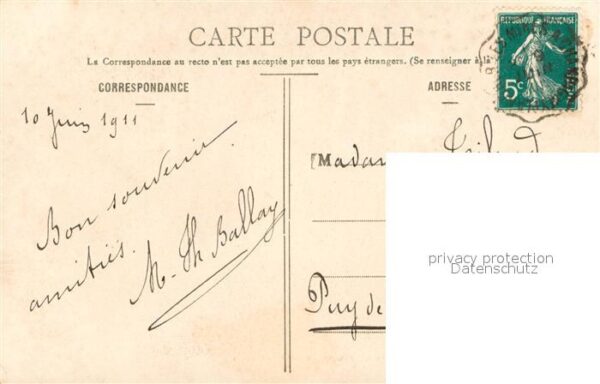 CARTE POSTALE
La Correspondance au recto n'est pas acceptée par tous les pays étrangers. (Se renseigner à
CORRESPONDANCE
ADRESSE
REPUBLIQUE FRANÇAISE
5c
10 Juin 1911
Bon souvenir
amitiés.
M. Th Ballay
Mada
Puy de
privacy protection
Datenschutz